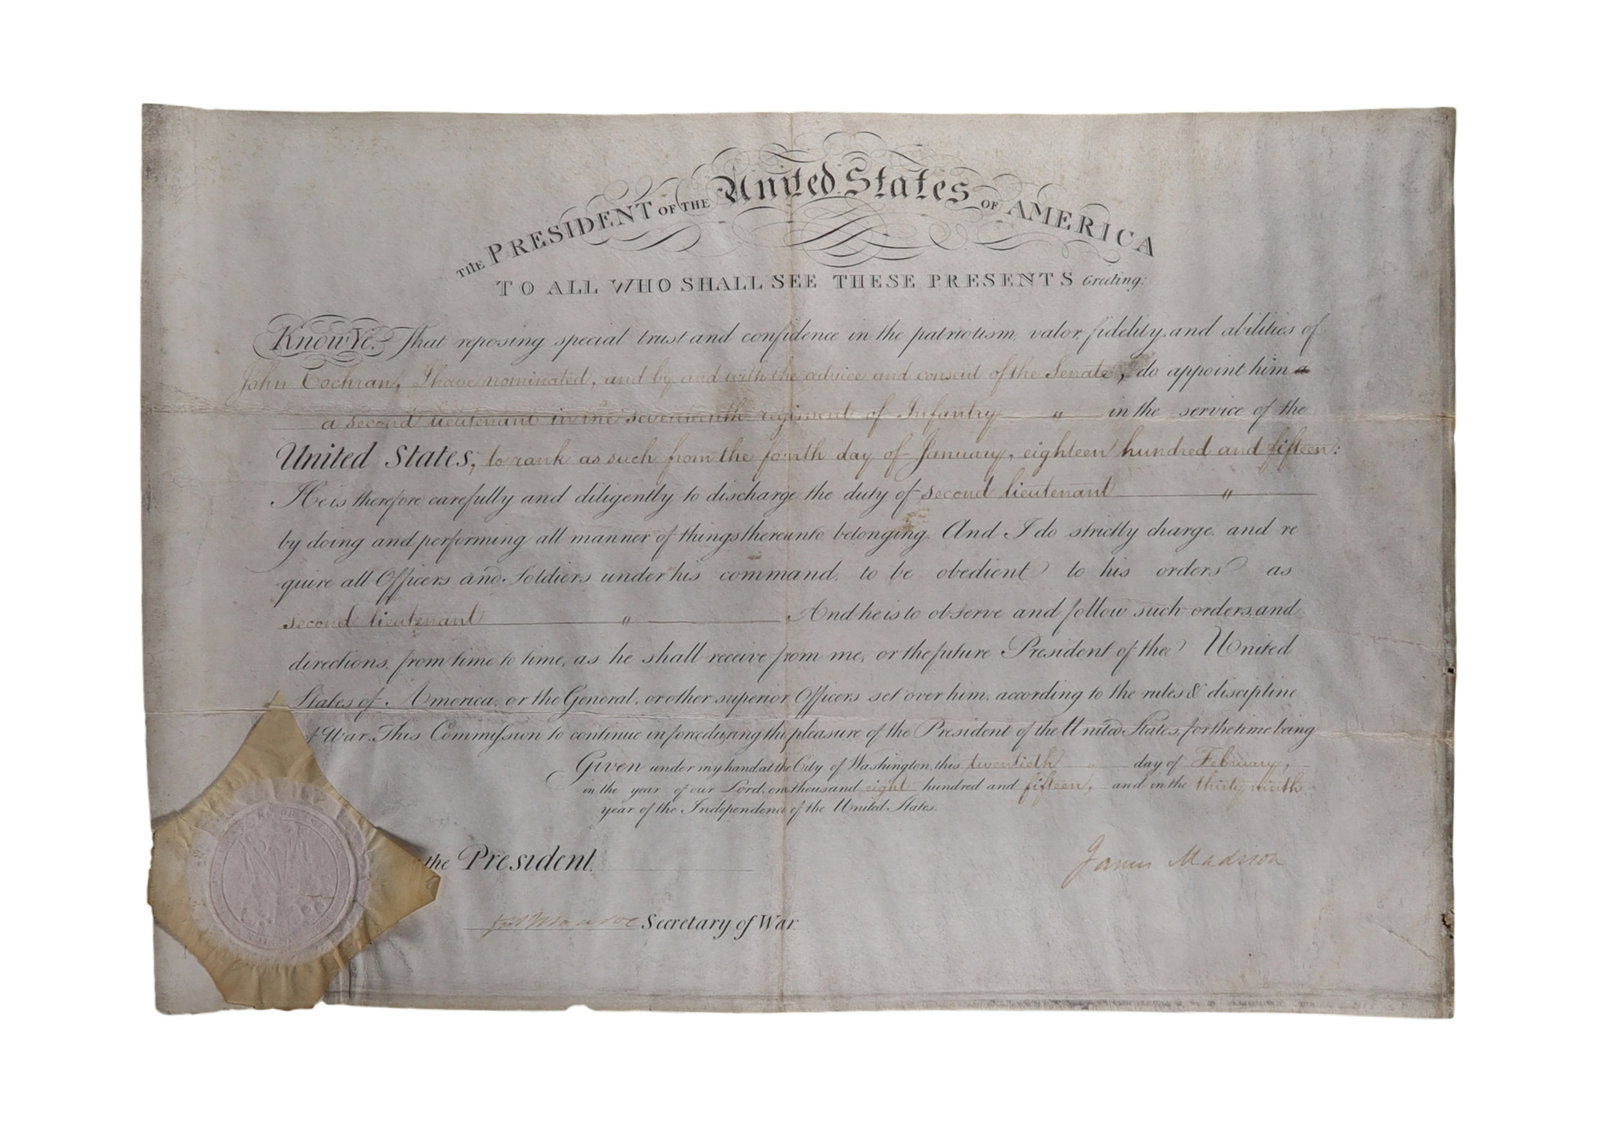 THE PRESIDENT OF THE United States OF AMERICA
TO ALL WHO SHALL SEE THESE PRESENTS Greeting:
Know Ye, That reposing special trust and confidence in the patriotism, valor, fidelity, and abilities of
John Cochran, I have nominated, and by and with the advice and consent of the Senate, do appoint him a
a second lieutenant in the seventeenth regiment of Infantry " in the service of the
United States, to rank as such from the fourth day of January, eighteen hundred and fifteen:
He is therefore carefully and diligently to discharge the duty of second lieutenant "
by doing and performing all manner of things thereunto belonging. And I do strictly charge, and re
quire all Officers and Soldiers under his command, to be obedient to his orders as
second lieutenant " And he is to observe and follow such orders, and
directions, from time to time, as he shall receive from me, or the future President of the United
States of America, or the General, or other superior Officers set over him, according to the rules & discipline
of War. This Commission to continue in force during the pleasure of the President of the United States, for the time being
Given under my hand, at the City of Washington, this twentieth day of February,
in the year of our Lord, on thousand eight hundred and fifteen, and in the thirty ninth
year of the Independence of the United States.
James Madison
the President.
Jas Monroe Secretary of War.